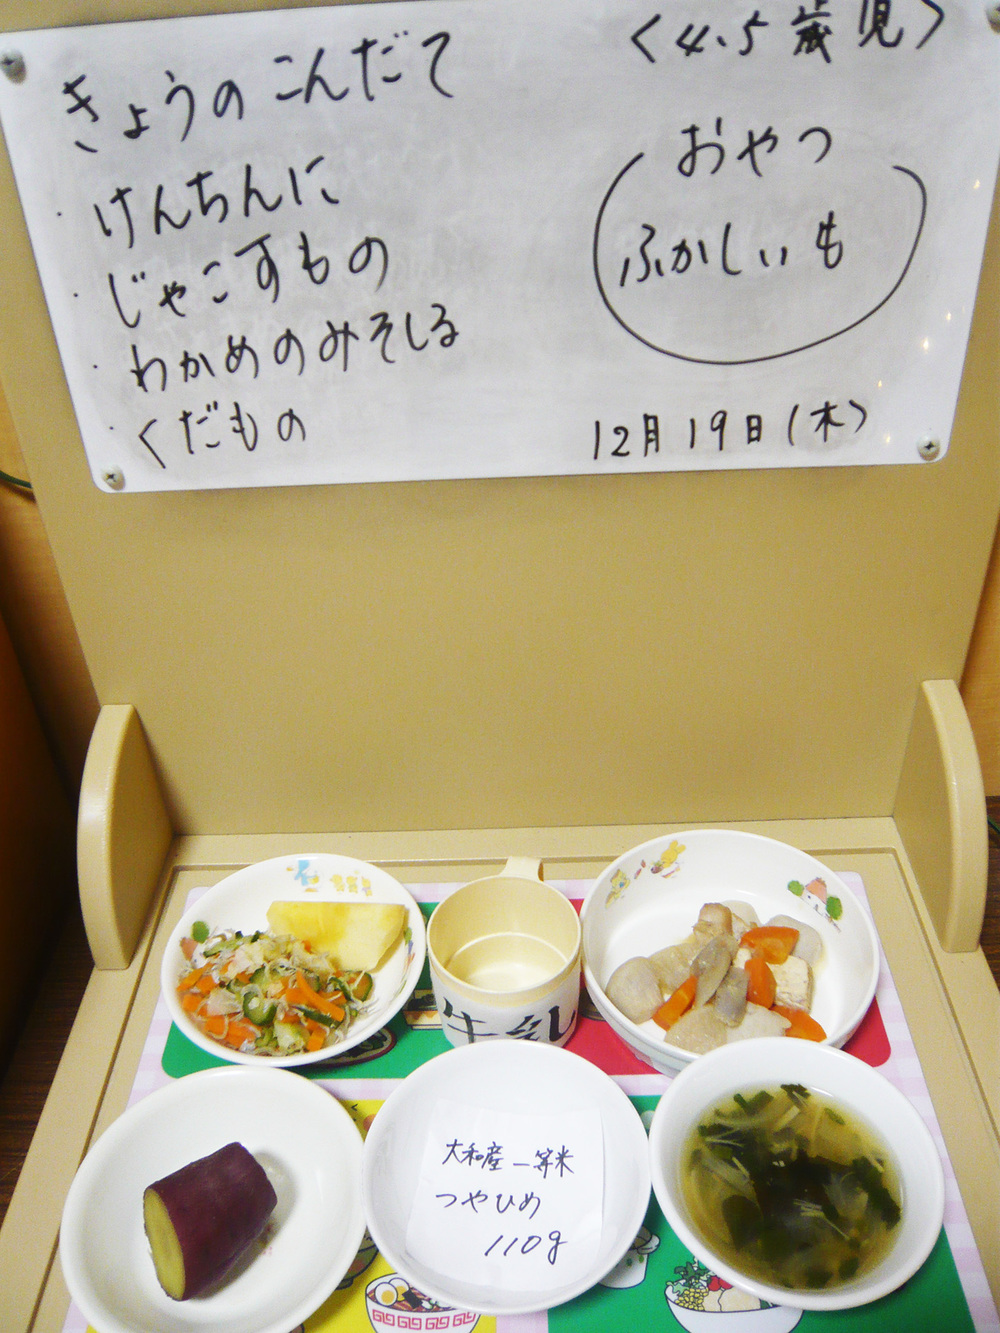 きょうのこんだて
〈4.5歳児〉
・けんちんに
・じゃこすもの
・わかめのみそしる
・くだもの
おやつ
ふかしいも
12月19日(木)
牛乳
大和産一等米
つやひめ
110g